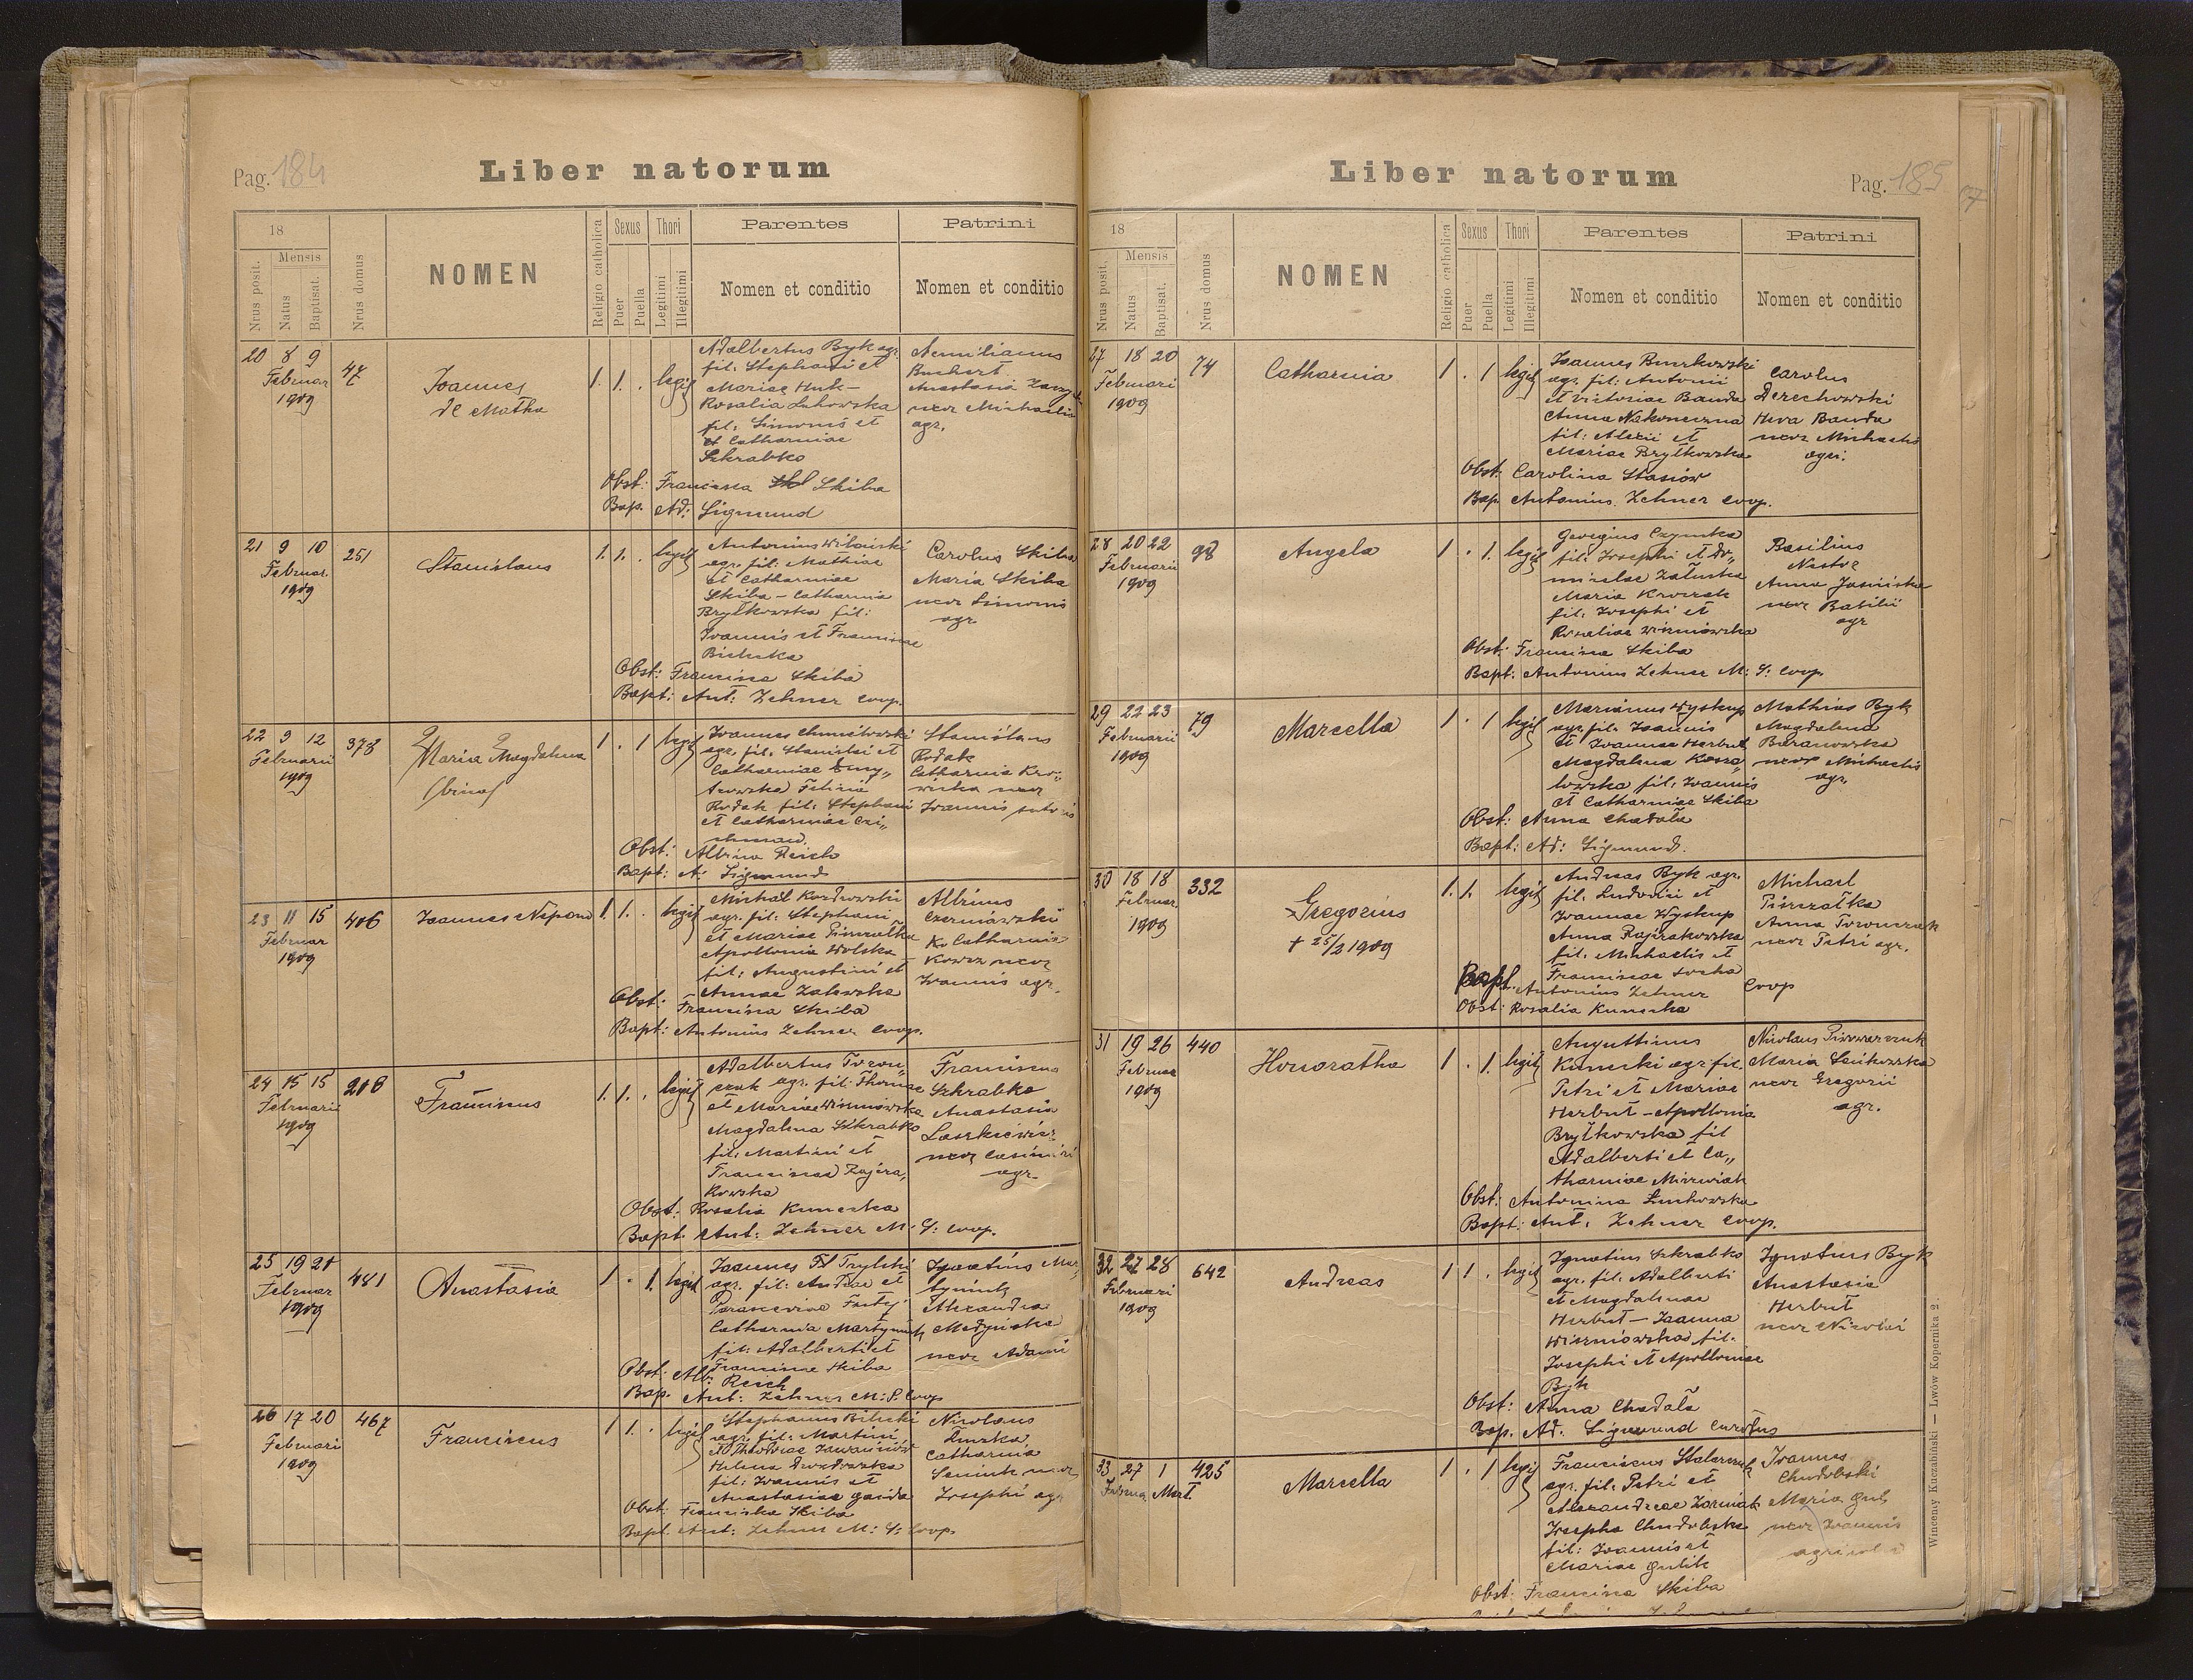 Pag. 184
Liber natorum
18
Nrus posit.
Mensis
Natus
Baptisat.
Nrus domus
NOMEN
Religio catholica
Sexus
Puer
Puella
Thori
Legitimi
Illegitimi
Parentes
Nomen et conditio
Patrini
Nomen et conditio
20 8 9
Februar
1909
47
Joannes
de Matha
1. 1. . legit
Adalbertus Byk agr.
fil. Stephani et
Mariae Huk-
Rosalia
fil: Simonis et
et Catharniae
Szkrabko
Aemilianus
Anastasia
uxor Michaelis
agr.
Obst: Francisca Skiba
Bap. Ad: Sigmund
21 9 10
Februar.
1909
251
Stanislaus
1. 1. . legit
Antonius
agr. fil: Mathiae
et Catharniae
Skiba - Catharnia
Brytkowska fil:
Joannis et Franciscae
Bielska
Carolus Skiba
Maria Skiba
uxor Simonis
agr
Obst: Francisca Skiba
Bapt: Ant: Zehner coop.
22 9 12
Februarii
1909
378
Maria Magdalena
(bina)
1 . 1 legit
Joannes
agr. fil. Stanislai et
Catharniae
Rodak fil: Stephani
et Catharniae
Stanislaus
Rodak
Catharnia
uxor
Joannis sutoris
Obst: Albina Reich
Bapt: A: Sigmund
23 11 15
Februar
1909
406
Joannes Nepom
1. 1. . legit
Michal
agr. fil: Stephani
et Mariae
Apollonia Wolska
fil: Augustini et
Annae Zalewska
Albinus
Czerniawski
Catharnia
uxor
Joannis agr.
Obst: Francisca Skiba
Bapt: Antonius Zehner coop.
24 15 15
Februarii
1909
208
Franciscus
1. 1. . legit
Adalbertus Toron„
czuk agr. fil: Thomae
et Mariae Wiszniowska
Magdalena Szkrabko
fil: Martini et
Franciscae Zajcza„
kowska
Franciscus
Szkrabko
Anastasia
Laszkiewicz
uxor Casimiri
agr-
Obst: Rosalia Kunecka
Bapt. Ant: Zehner M: S: coop.
25 19 21
Februar
1909
481
Anastasia
1 . 1. legit
Joannes
agr. fil: Andreae et
Catharnia
fil: Adalberti et
Franciscae Skiba
Ignatius
Alexandra
uxor Adami
Obst: Alb: Reich
Bap. Ant: Zehner M: S. coop
26 17 20
Februari
1909
467
Franciscus
1 1. . legit
Stephanus Bilecki
agr. fil: Martini
Helena
fil: Joannis et
Anastasiae
Nicolaus
Catharnia
uxor
Josephi agr
Obst: Franciska Skiba
Bapt. Ant: Zehner M: S: coop
Pag. 185
Liber natorum
18
Nrus posit.
Mensis
Natus
Baptisat.
Nrus domus
NOMEN
Religio catholica
Sexus
Puer
Puella
Thori
Legitimi
Illegitimi
Parentes
Nomen et conditio
Patrini
Nomen et conditio
27 18 20
Februari
1909
74
Catharnia
1 . 1 legit
Joannes
agr. fil: Antonii
et Victoriae Banda
Anna Nakoneczna
fil: Alexii et
Mariae Brytkowska
Carolus
Derechowski
Heva Banda
uxor Michaelis
agri.
Obst: Carolina Stasiów
Bap. Antonius Zehner coop.
28 20 22
Februarii
1909
98
Angela
1 . 1. legit
Georgius
fil: Josephi et Do„
Maria
fil: Josephi et
Rosaliae Wiszniowska
Basilius
Nestor
Anna
uxor Basilii
agr
Obst: Francisca Skiba
Bapt: Antonius Zehner M: S: coop
29 22 23
Februarii
1909
79
Marcella
1 . 1 legit
Marianus Wyskup
agr. fil. Joannis
et Joannae Herbut
Magdalena
fil. Joannis
et Catharniae Skiba
Mathias Byk
Magdalena
Baranowska
uxor Michaelis
agr.
Obst: Anna Chadala
Bapt: Ad: Sigmund.
30 18 18
Februar
1909
332
Gregorius
† 25/2 1909
1. 1. legit
Andreas Byk agr.
fil. Ludovici et
Joannae Wyskup
Anna Zajczakowska
fil. Michaelis et
Franciscae Socha
Michael
Piszczatka
Anna Toronczuk
uxor Petri agr.
Bapt. Antonius Zehner coop
Obst: Rosalia Kunecka
31 19 26
Februar
1909
440
Honoratha
1 . 1. legit
Augustinus
Kunecki agr fil.
Petri et Mariae
Herbut - Apollonia
Brytkowska fil
Adalberti et Ca„
tharniae
Nicolaus Piwowarczuk
Maria
uxor Gregorii
agr.
Obst: Antonina
Bapt: Ant: Zehner coop.
32 27 28
Februari
1909
642
Andreas
1 1. . legit
Ignatius Szkrabko
agr. fil. Adalberti
et Magdalenae
Herbut - Joanna
Wiszniowska fil.
Josephi et Apolloniae
Byk
Ignatius Byk
Anastasia
Herbut
uxor Nicolai
Obst: Anna Chadala
Bap. Ad. Sigmund curatus
33 27 1
Februar Mart.
425
Marcella
1 . 1 legit
Franciscus
agr. fil. Petri et
Alexandrae
Josepha Chudobska
fil: Joannis et
Mariae Gulik
Joannes
Chudobski
Maria
uxor Joannis
agricola
Obst. Francisca Skiba
Wincenty Kuczabiński — Lwów Kopernika 2.